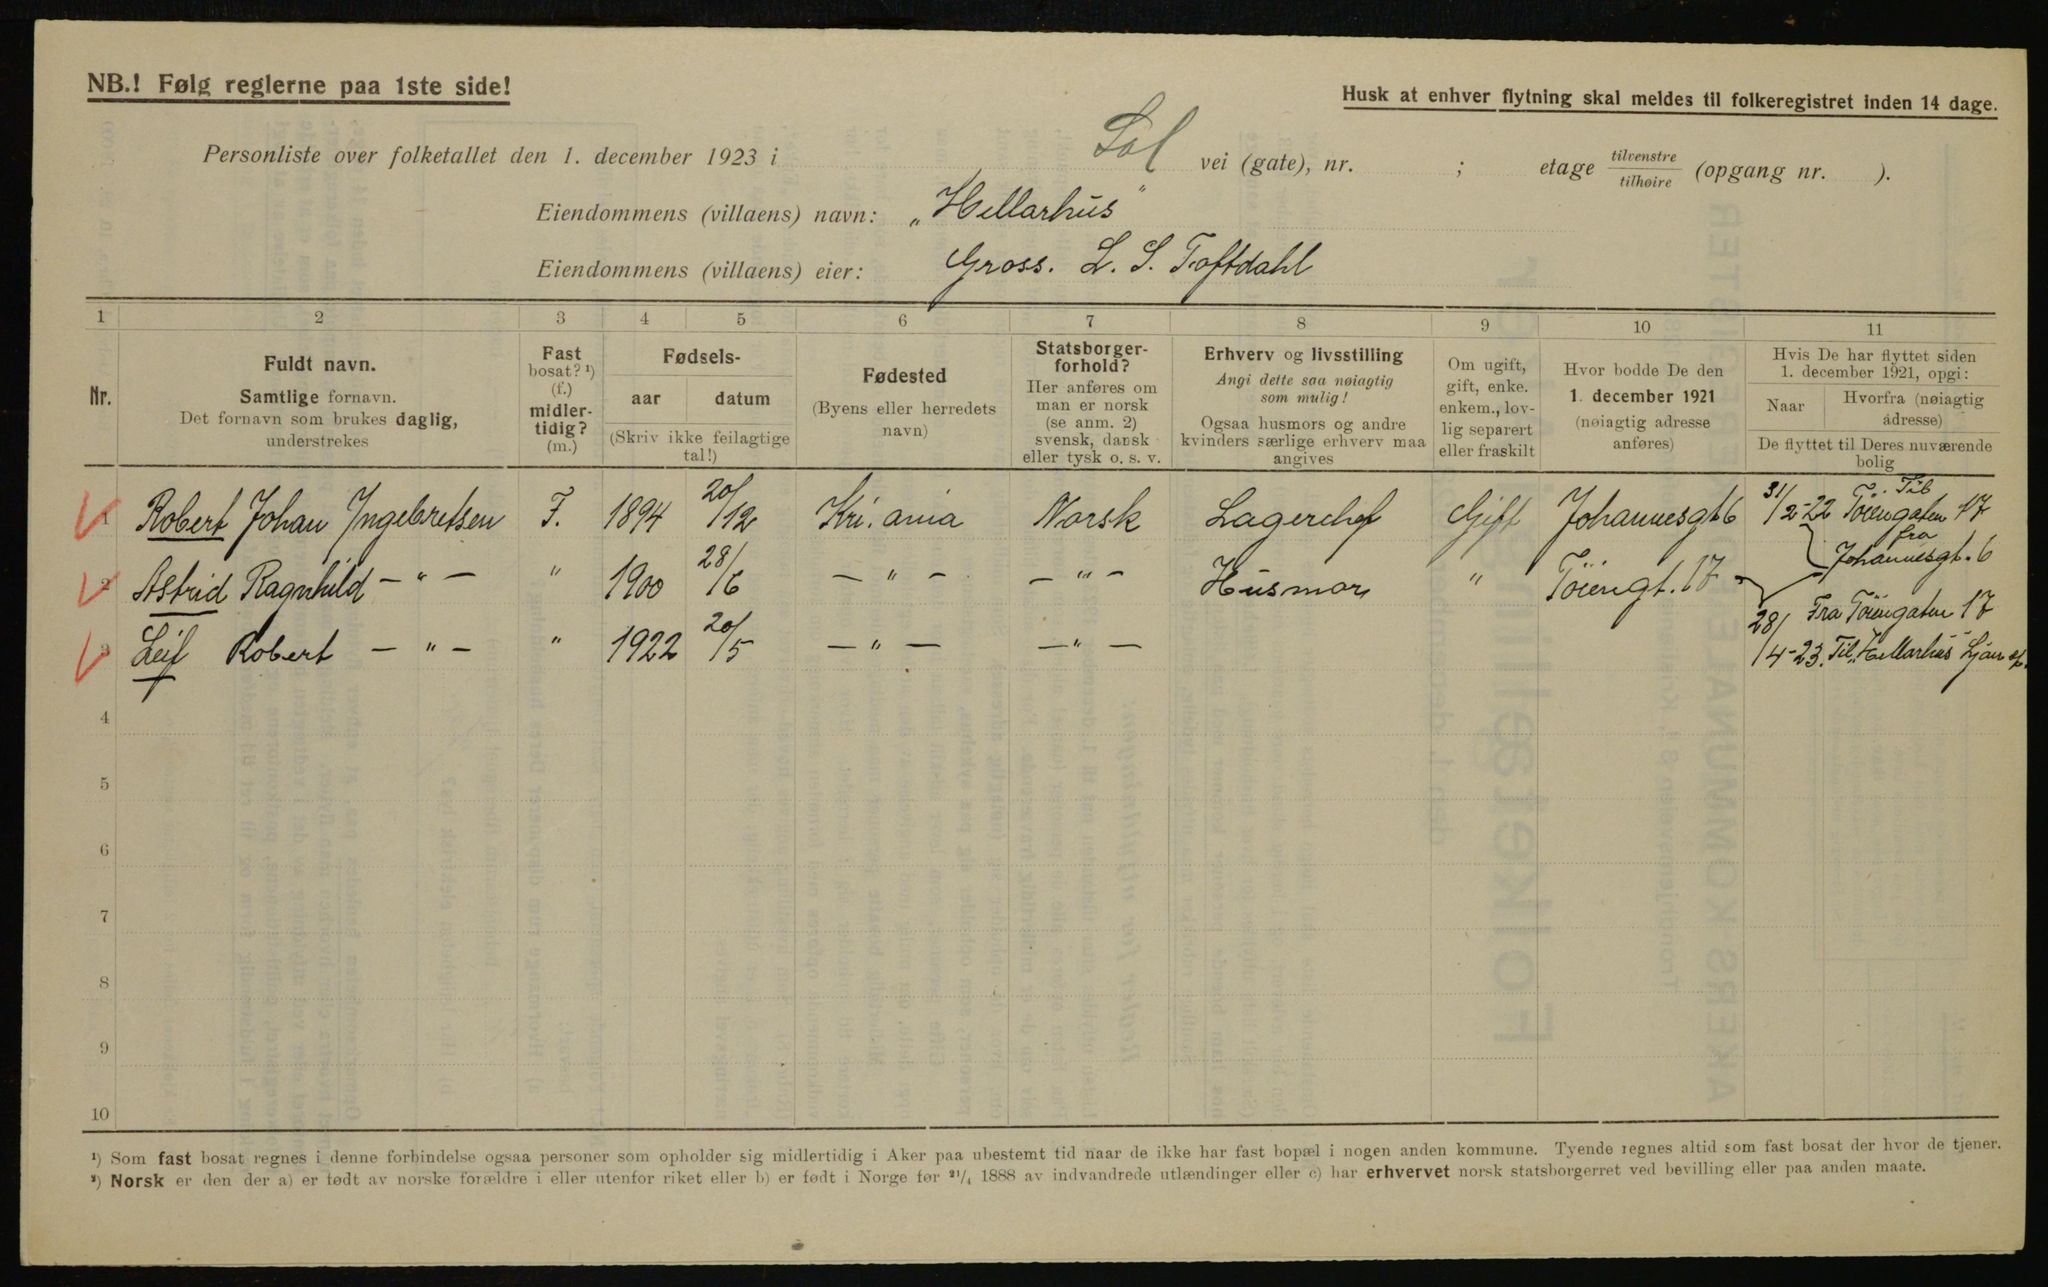 NB.! Følg reglerne paa 1ste side!
Husk at enhver flytning skal meldes til folkeregistret inden 14 dage.
Personliste over folketallet den 1. december 1923 i Sol vei (gate), nr. ; etage tilvenstre/tilhøire (opgang nr. ).
Eiendommens (villaens) navn: „Hellarhus"
Eiendommens (villaens) eier: Gross. L. S. Toftdahl
1 2 3 4 5 6 7 8 9 10 11
Nr.
Fuldt navn.
Samtlige fornavn.
Det fornavn som brukes daglig,
understrekes
Fast
bosat? ¹)
(f.)
midler-
tidig?
(m.)
Fødsels-
aar datum
(Skriv ikke feilagtige
tal!)
Fødested
(Byens eller herredets
navn)
Statsborger-
forhold?
Her anføres om
man er norsk
(se anm. 2)
svensk, dansk
eller tysk o. s. v.
Erhverv og livsstilling
Angi dette saa nøiagtig
som mulig!
Ogsaa husmors og andre
kvinders særlige erhverv maa
angives
Om ugift,
gift, enke.
enkem., lov-
lig separert
eller fraskilt
Hvor bodde De den
1. december 1921
(nøiagtig adresse
anføres)
Hvis De har flyttet siden
1. december 1921, opgi:
Naar
Hvorfra (nøiagtig
adresse)
De flyttet til Deres nuværende
bolig
1 Robert Johan Ingebretsen F. 1894 20/12 Kri.ania Norsk Lagerchef Gift Johannesgt 6 31/2-22 Til Töiengaten 17
fra
Johannesgt. 6
2 Astrid Ragnhild — " — " 1900 28/6 — " — — " — Husmor " Töiengt. 17
3 Leif Robert — " — " 1922 20/5 — " — — " — 28/4-23. Fra Töiengaten 17
Til „Hellarhus" Ljan st.
4
5
6
7
8
9
10
¹) Som fast bosat regnes i denne forbindelse ogsaa personer som opholder sig midlertidig i Aker paa ubestemt tid naar de ikke har fast bopæl i nogen anden kommune. Tyende regnes altid som fast bosat der hvor de tjener.
²) Norsk er den der a) er født av norske forældre i eller utenfor riket eller b) er født i Norge før ²¹/₄ 1888 av indvandrede utlændinger eller c) har erhvervet norsk statsborgerret ved bevilling eller paa anden maate.